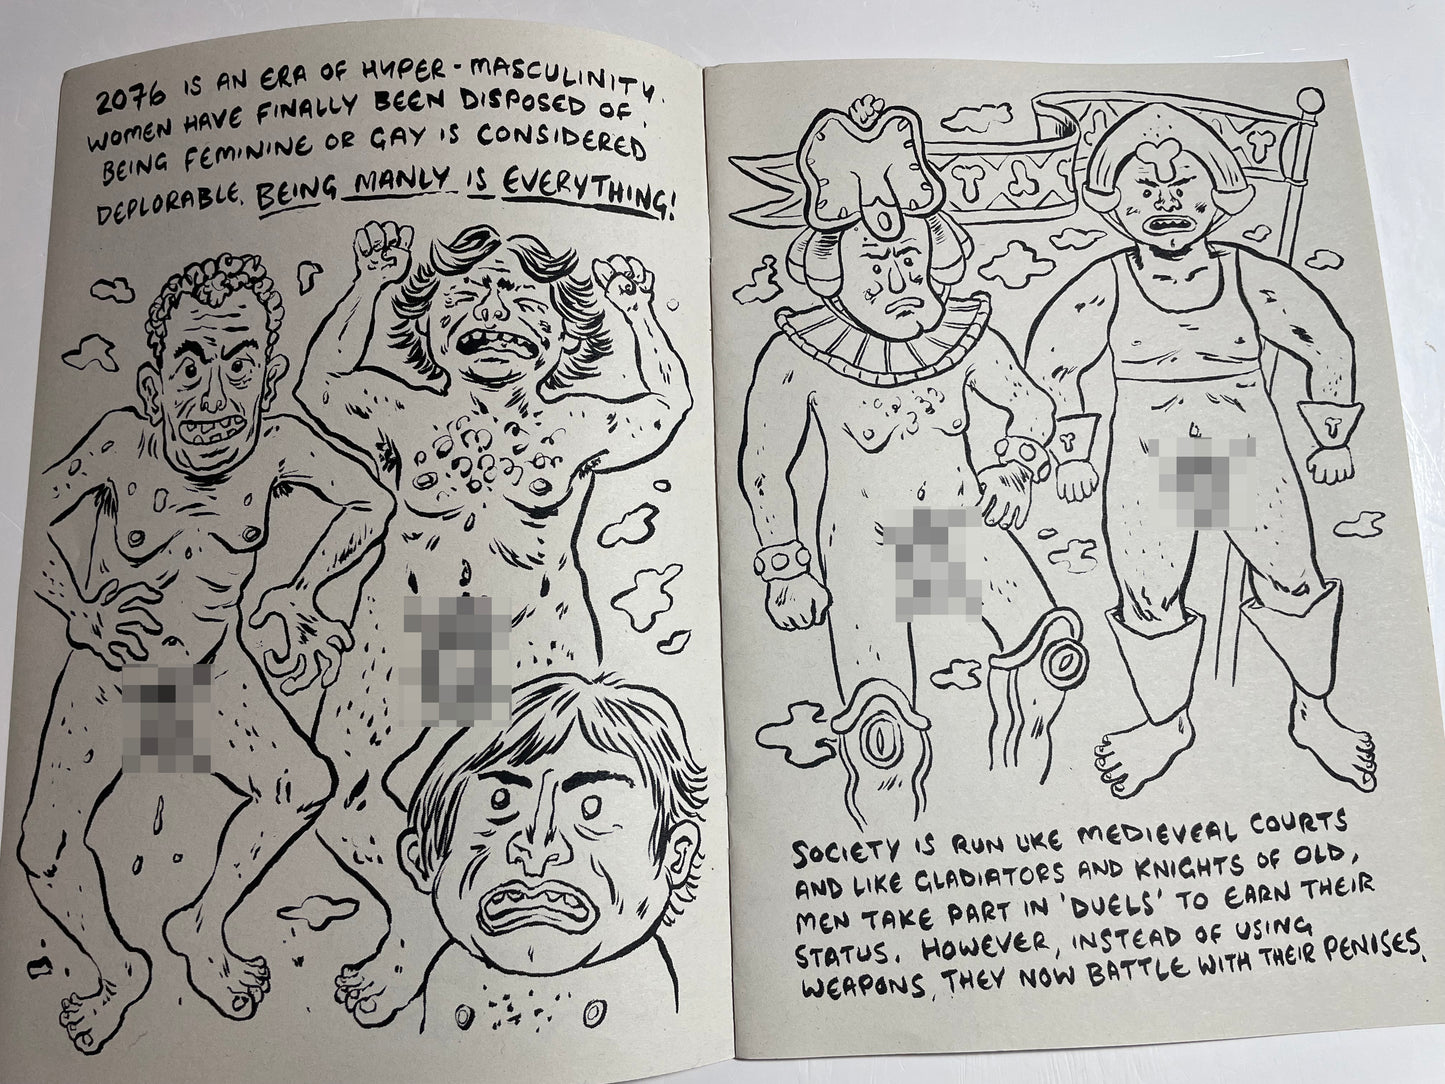 2076 IS AN ERA OF HYPER-MASCULINITY.
WOMEN HAVE FINALLY BEEN DISPOSED OF.
BEING FEMININE OR GAY IS CONSIDERED
DEPLORABLE. BEING MANLY IS EVERYTHING!
SOCIETY IS RUN LIKE MEDIEVEAL COURTS
AND LIKE GLADIATORS AND KNIGHTS OF OLD,
MEN TAKE PART IN 'DUELS' TO EARN THEIR
STATUS. HOWEVER, INSTEAD OF USING
WEAPONS, THEY NOW BATTLE WITH THEIR PENISES.